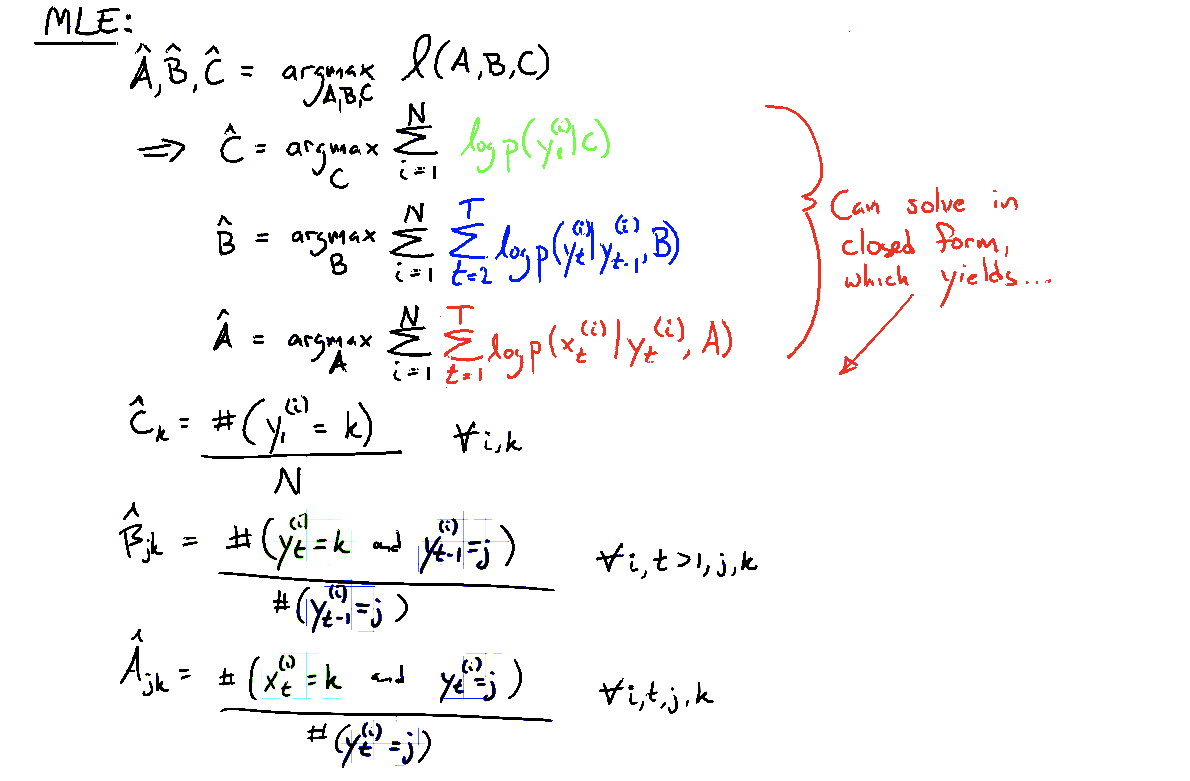 MLE:
Â, B̂, Ĉ = argmax_{A,B,C} ℓ(A,B,C)
⇒ Ĉ = argmax_C ∑_{i=1}^{N} log p(y_1^{(i)}|C)
B̂ = argmax_B ∑_{i=1}^{N} ∑_{t=2}^{T} log p(y_t^{(i)}|y_{t-1}^{(i)}, B)
Â = argmax_A ∑_{i=1}^{N} ∑_{t=1}^{T} log p(x_t^{(i)}|y_t^{(i)}, A)
Can solve in
closed form,
which yields...
Ĉ_k = #(y_1^{(i)} = k) / N ∀ i,k
B̂_{jk} = #(y_t^{(i)} = k and y_{t-1}^{(i)} = j) / #(y_{t-1}^{(i)} = j) ∀ i, t>1, j, k
Â_{jk} = #(x_t^{(i)} = k and y_t^{(i)} = j) / #(y_t^{(i)} = j) ∀ i,t,j,k